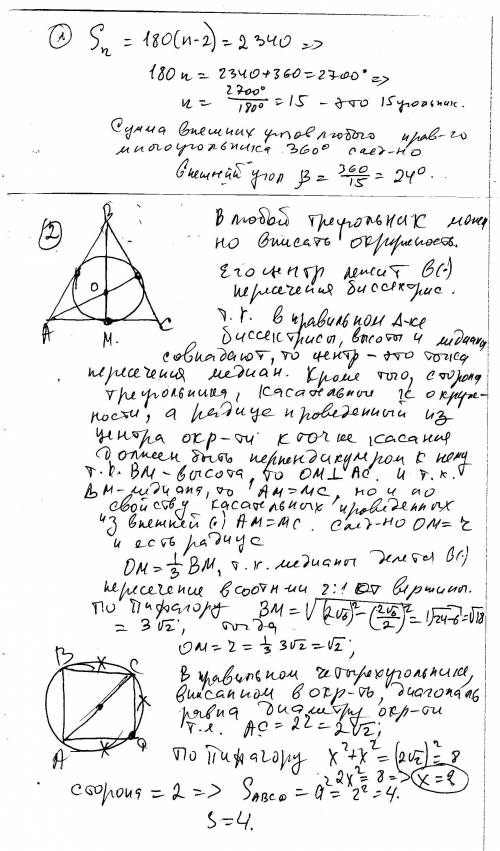 ① Sₙ = 180(n-2) = 2340 =>
180n = 2340+360 = 2700° =>
n = 2700°/180° = 15 - это 15угольник.
Сумма внешних углов любого прав-го
многоугольника 360° след-но
Внешний угол β = 360/15 = 24°.
②
B
O
A M. C
В любой треугольник мож
но вписать окружность.
Его центр лежит в (·)
пересечения биссектрис.
Т.к. в правильном Δ-ке
биссектрисы, высоты и медианы
совпадают, то центр - это точка
пересечения медиан. Кроме того, сторона
треугольника, касательная к окруж-
ности, а радиус проведенный из
центра окр-ти к точке касания
должен быть перпендикуляром к нему
т.к. BM - высота, то OM⊥AC. и т.к.
BM - медиана, то AM=MC, но и по
свойству касательных проведенных
из внешней (·) AM=MC. След-но OM=r
и есть радиус
OM = 1/3 BM, т.к. медианы делятся в (·)
пересечения в соотн-ии 2:1 от вершины.
По Пифагору BM = √((2√6)² - (2√6/2)²) = √(24-6) = √18
= 3√2; тогда
OM = r = 1/3 3√2 = √2;
B x C
x
A x D
В правильном четырехугольнике,
вписанном в окр-ть, диагональ
равна диаметру окр-ти
т.е. AC = 2r = 2√2;
По Пифагору x²+x² = (2√2)² = 8
2x² = 8 => x = 2
сторона = 2 => S_ABCD = a² = 2² = 4.
S = 4.